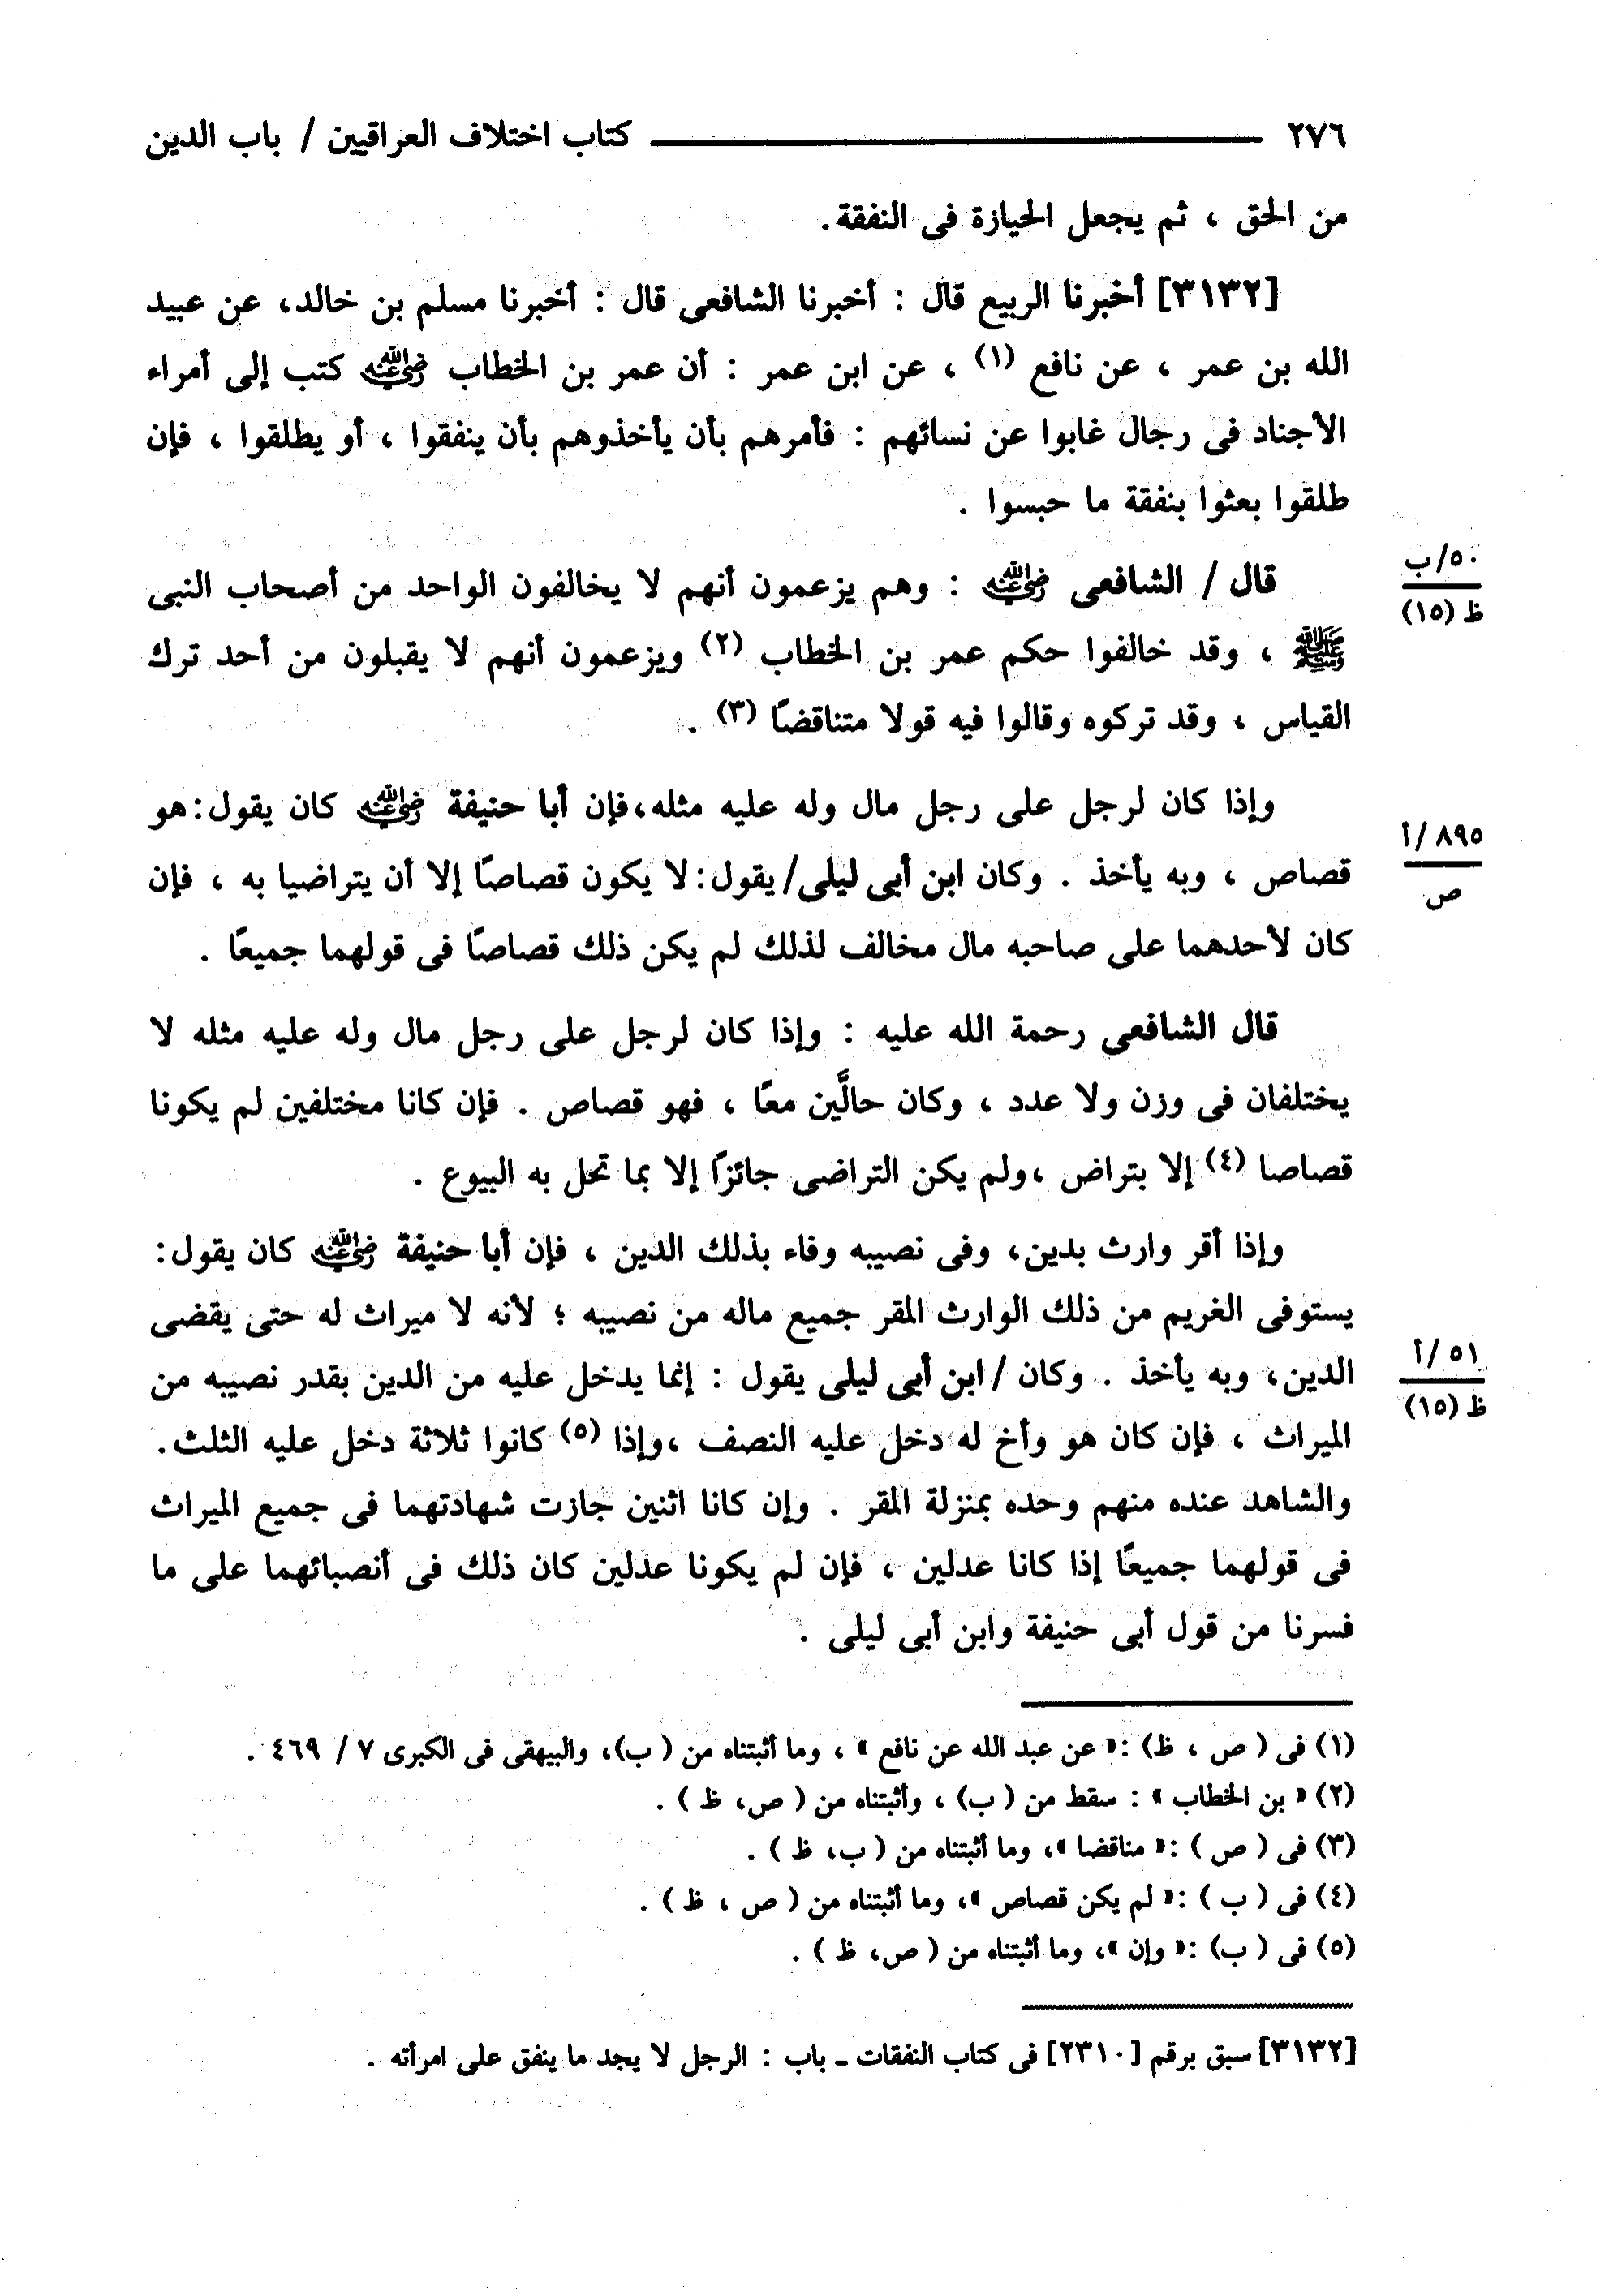 ٢٧٦ كتاب اختلاف العراقيين / باب الدين
من الحق ، ثم يجعل الحيازة فى النفقة.
[٣١٣٢] أخبرنا الربيع قال : أخبرنا الشافعى قال : أخبرنا مسلم بن خالد، عن عبيد
الله بن عمر ، عن نافع (١) ، عن ابن عمر : أن عمر بن الخطاب رضي الله عنه كتب إلى أمراء
الأجناد فى رجال غابوا عن نسائهم : فأمرهم بأن يأخذوهم بأن ينفقوا ، أو يطلقوا ، فإن
طلقوا بعثوا بنفقة ما حبسوا .
٥٠/ب
ظ (١٥)
قال / الشافعى رضي الله عنه : وهم يزعمون أنهم لا يخالفون الواحد من أصحاب النبى
ﷺ ، وقد خالفوا حكم عمر بن الخطاب (٢) ويزعمون أنهم لا يقبلون من أحد ترك
القياس ، وقد تركوه وقالوا فيه قولا متناقضًا (٣) .
وإذا كان لرجل على رجل مال وله عليه مثله،فإن أبا حنيفة رضي الله عنه كان يقول:هو
٨٩٥/أ
ص
قصاص ، وبه يأخذ . وكان ابن أبى ليلى/يقول:لا يكون قصاصًا إلا أن يتراضيا به ، فإن
كان لأحدهما على صاحبه مال مخالف لذلك لم يكن ذلك قصاصًا فى قولهما جميعًا .
قال الشافعى رحمة الله عليه : وإذا كان لرجل على رجل مال وله عليه مثله لا
يختلفان فى وزن ولا عدد ، وكان حالَّين معًا ، فهو قصاص . فإن كانا مختلفين لم يكونا
قصاصا (٤) إلا بتراض ،ولم يكن التراضى جائزًا إلا بما تحل به البيوع .
وإذا أقر وارث بدين، وفى نصيبه وفاء بذلك الدين ، فإن أبا حنيفة رضي الله عنه كان يقول:
يستوفى الغريم من ذلك الوارث المقر جميع ماله من نصيبه ؛ لأنه لا ميراث له حتى يقضى
٥١/أ
ظ (١٥)
الدين، وبه يأخذ . وكان /ابن أبى ليلى يقول : إنما يدخل عليه من الدين بقدر نصيبه من
الميراث ، فإن كان هو وأخ له دخل عليه النصف ،وإذا (٥) كانوا ثلاثة دخل عليه الثلث.
والشاهد عنده منهم وحده بمنزلة المقر . وإن كانا اثنين جازت شهادتهما فى جميع الميراث
فى قولهما جميعًا إذا كانا عدلين ، فإن لم يكونا عدلين كان ذلك فى أنصبائهما على ما
فسرنا من قول أبى حنيفة وابن أبى ليلى .
(١) فى ( ص ، ظ) :« عن عبد الله عن نافع » ، وما أثبتناه من ( ب)، والبيهقى فى الكبرى ٧ / ٤٦٩ .
(٢) « بن الخطاب » : سقط من ( ب) ، وأثبتناه من ( ص، ظ ) .
(٣) فى ( ص ) :« مناقضا »، وما أثبتناه من ( ب، ظ ) .
(٤) فى ( ب ) :« لم يكن قصاص »، وما أثبتناه من ( ص ، ظ ) .
(٥) فى ( ب) :« وإن »، وما أثبتناه من ( ص، ظ ) .
[٣١٣٢] سبق برقم [٢٣١٠] فى كتاب النفقات ـ باب : الرجل لا يجد ما ينفق على امرأته .